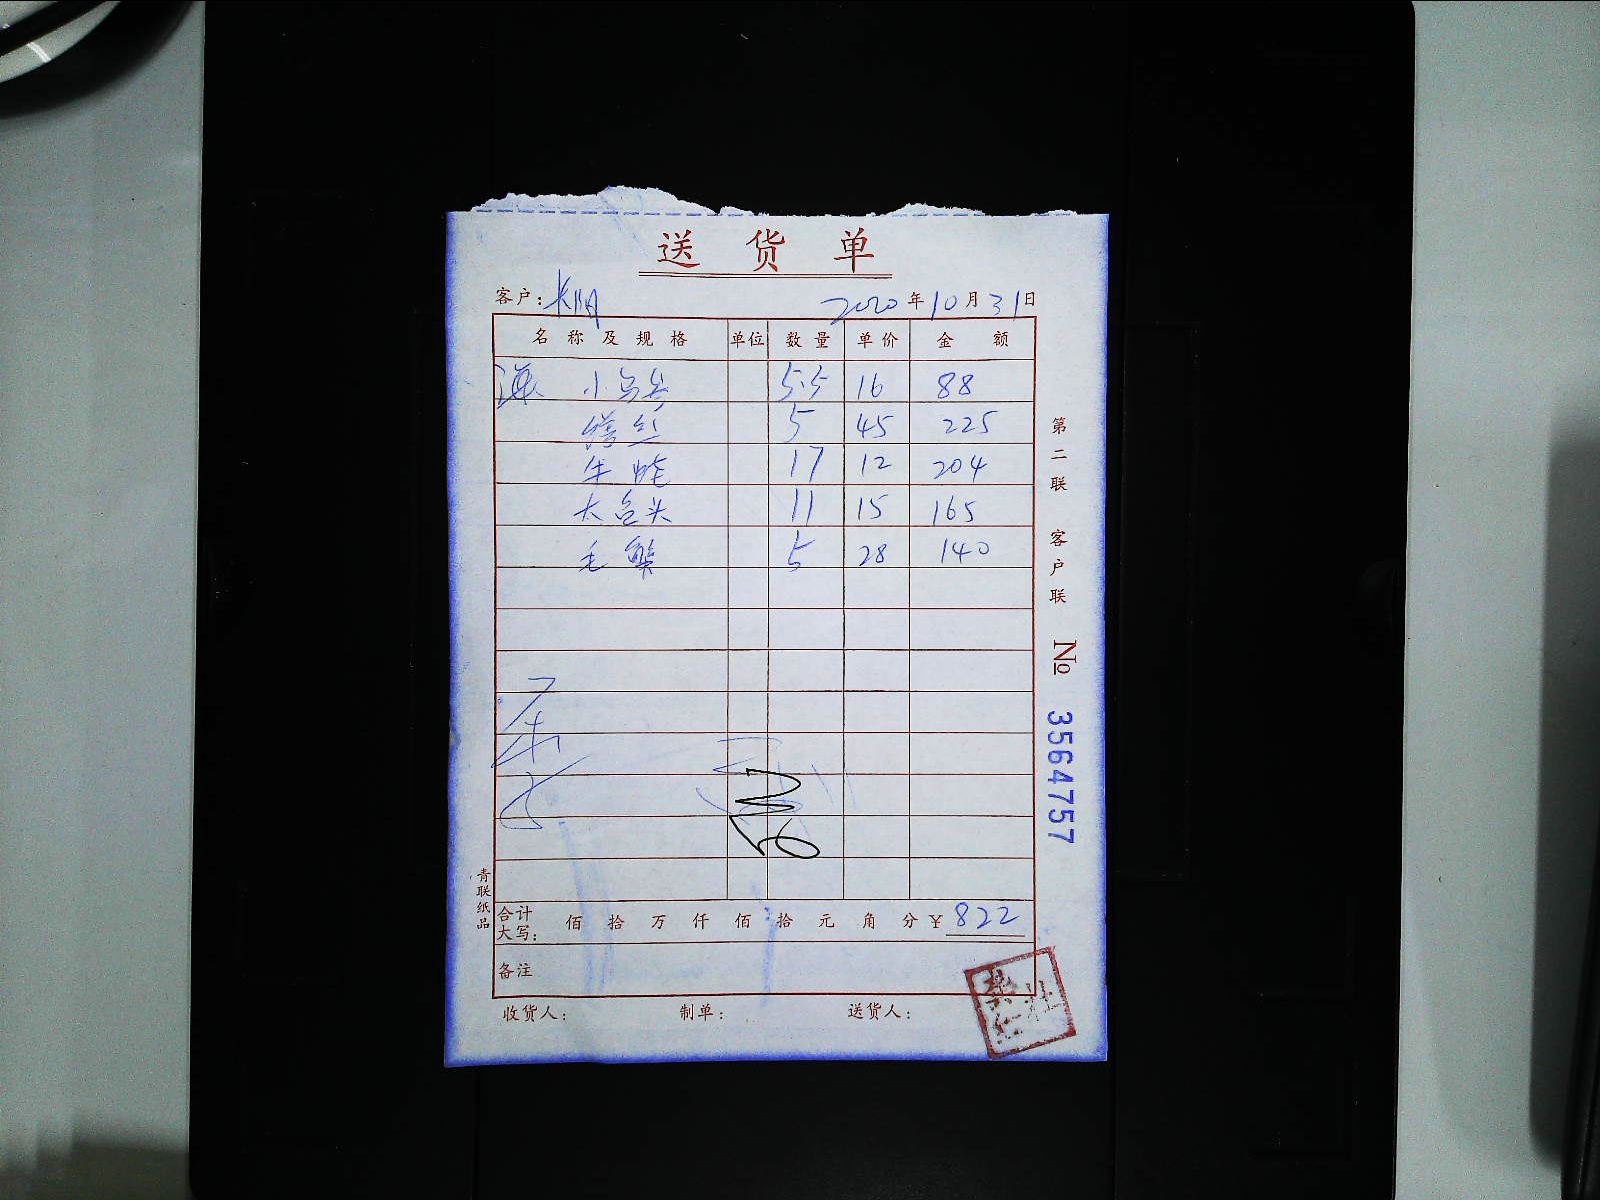 送货单
客户: 2020年10月31日
名称及规格 单位 数量 单价 金额
小 5.5 16 88
丝 5 45 225
牛 17 12 204
大 头 11 15 165
毛蟹 5 28 140
合计大写: 佰 拾 万 仟 佰 拾 元 角 分 ¥822
备注
收货人: 制单: 送货人:
第二联 客户联
№ 3564757
青联纸品